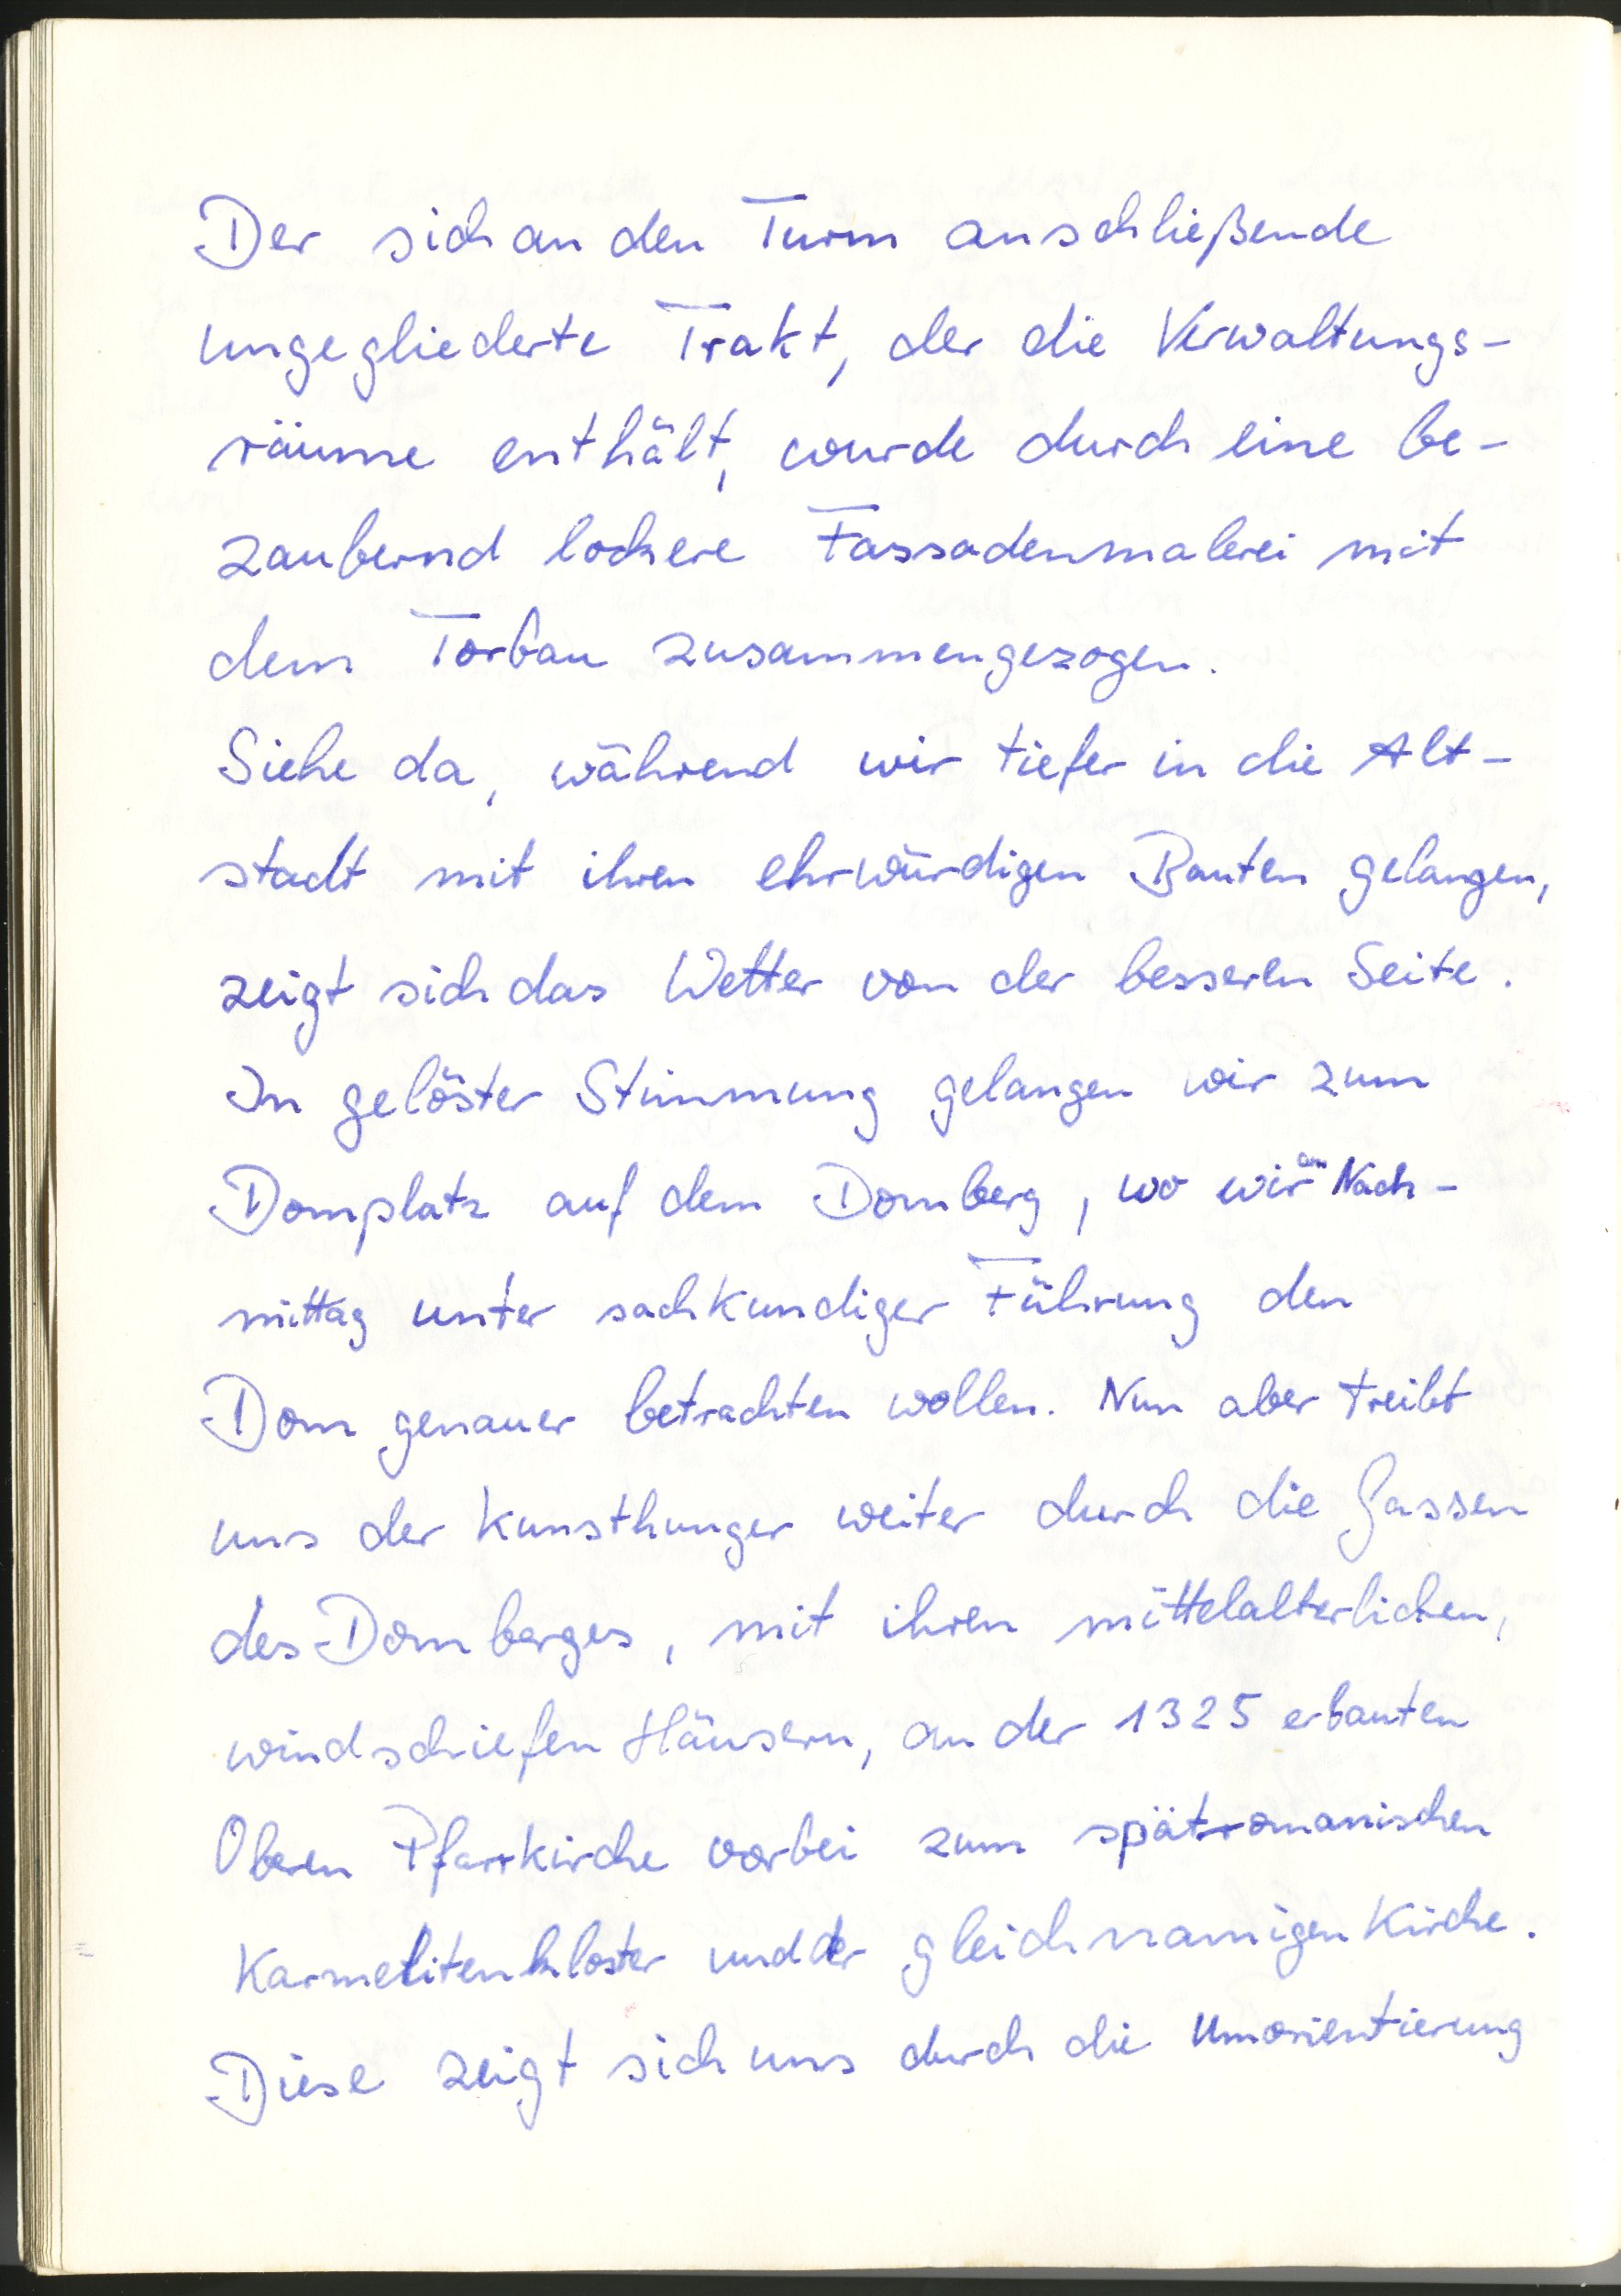 Der sich an den Turm anschließende
ungegliederte Trakt, der die Verwaltungs-
räume enthält, wurde durch eine be-
zaubernd lockere Fassadenmalerei mit
dem Torbau zusammengezogen.
Siehe da, während wir tiefer in die Alt-
stadt mit ihren ehrwürdigen Bauten gelangen,
zeigt sich das Wetter von der besseren Seite.
In gelöster Stimmung gelangen wir zum
Domplatz auf dem Domberg, wo wir am Nach-
mittag unter sachkundiger Führung den
Dom genauer betrachten wollen. Nun aber treibt
uns der Kunsthunger weiter durch die Gassen
des Domberges, mit ihren mittelalterlichen,
windschiefen Häusern, an der 1325 erbauten
Oberen Pfarrkirche vorbei zum spätromanischen
Karmelitenkloster und der gleichnamigen Kirche.
Diese zeigt sich uns durch die Umorientierung